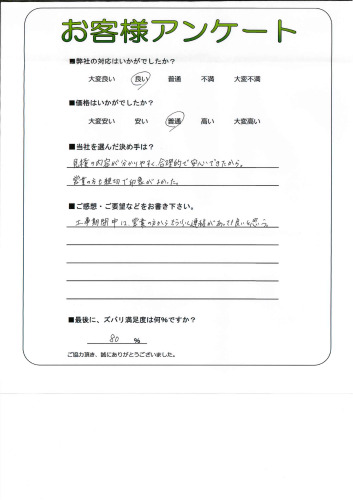 お客様アンケート
■弊社の対応はいかがでしたか？
大変良い 良い 普通 不満 大変不満
■価格はいかがですか？
大変安い 安い 普通 高い 大変高い
■当社を選んだ決め手は？
見積の内容が分かりやすく、合理的で安心できたから。
営業の方も親切で印象がよかった。
■ご感想・ご要望などをお書き下さい。
工事期間中は、営業の方からもう少し連絡があっても良いと思う。
■最後に、ズバリ満足度は何%ですか？
80 %
ご協力頂き、誠にありがとうございました。